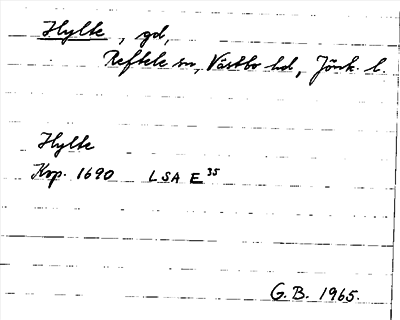 Hylte, gd,
Reftele sn, Västbo hd, Jönk. l.
Hylte
Kop. 1690 LSA E 35
G.B. 1965.